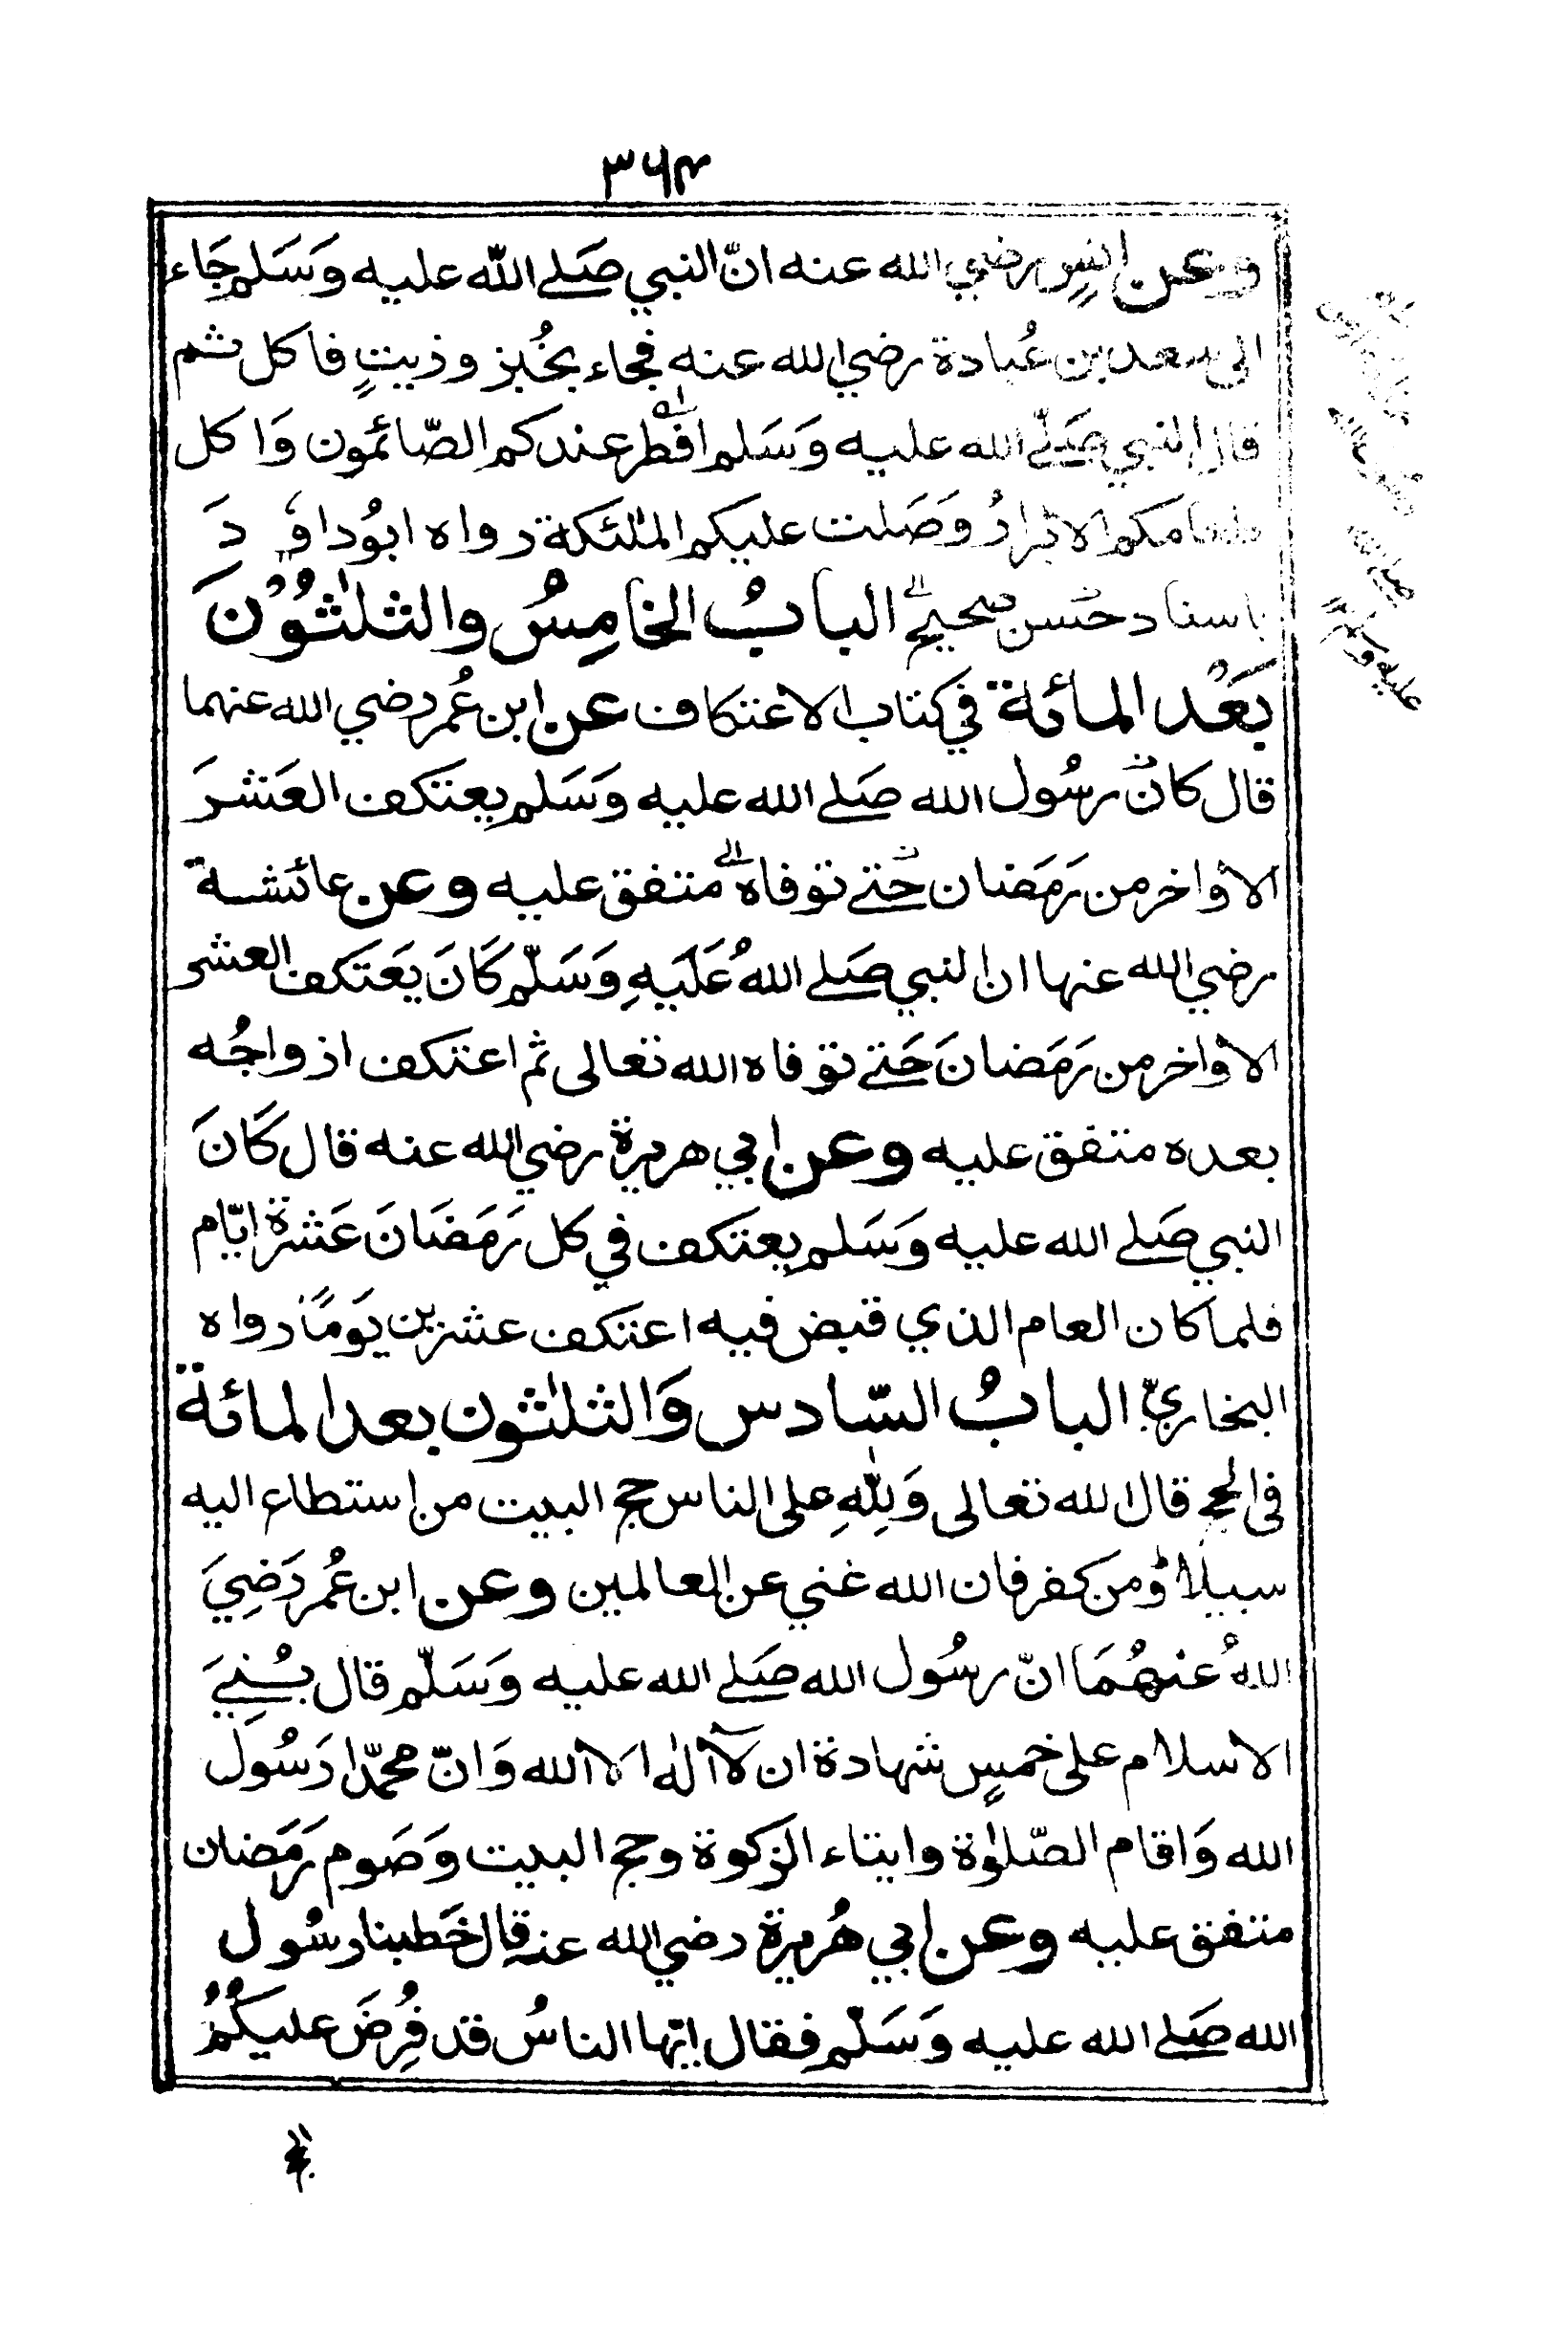 ٣٦٤
وعن انسٍ رضي الله عنه انّ النبي صَلے الله عليه وَسَلم جَاء
الى سعد بن عُبادة رضي الله عنه فجاء بخُبز وزيتٍ فاكل ثم
قال النبي صَلّے الله عليه وَسَلم افطر عندكم الصّائمون وَاكل
طعامكم الابرارُ وَصَلت عليكم الملٰئكة رواه ابوُداوٗدَ
باسناد حسن صحيح البابُ الخامِسُ والثلٰثُوْنَ
بَعْد المائة في كتاب الاعتكاف عن ابن عُمر رضي الله عنهما
قال كانَ رسُول الله صَلے الله عليه وَسَلم يعتكف العَشرَ
الاواخر من رَمَضان حَتے توفاه متفق عليه وعن عائشة
رضي الله عنها ان النبي صَلے اللهُ عَلَيهِ وَسَلّم كَانَ يَعتَكف العشر
الاواخر من رَمَضانَ حَتے توفاه الله تعالى ثم اعتكف ازواجُه
بعده متفق عليه وعن ابي هريرة رضي الله عنه قال كَانَ
النبي صَلے الله عليه وَسَلم يعتكف في كل رَمَضَانَ عَشرة ايّام
فلما كان العام الذي قبض فيه اعتكف عشرين يَومًا رواه
البخاريّ البابُ السّادس وَالثلٰثون بعد المائة
فى الحج قال الله تعالى وَلِلّٰهِ على الناس حج البيت من استطاع اليه
سبيلاً ومن كفر فان الله غني عن العالمين وعن ابن عُمر رَضِيَ
اللهُ عنهُمَا انّ رسُول الله صَلے الله عليه وَسَلّم قال بُنِيَ
الاسلام على خمسٍ شهادة ان لآ الٰه الا الله وَانّ محمّدا رَسُول
الله وَاقام الصّلوٰة وايتاء الزكوة وحج البيت وَصَوم رَمَضان
متفق عليه وعن ابي هُريرة رضي الله عنه قال خَطبنا رسُول
الله صَلے الله عليه وَسَلّم فقال ايّها الناسُ قد فُرِضَ عليكُمُ
عليه وسلم